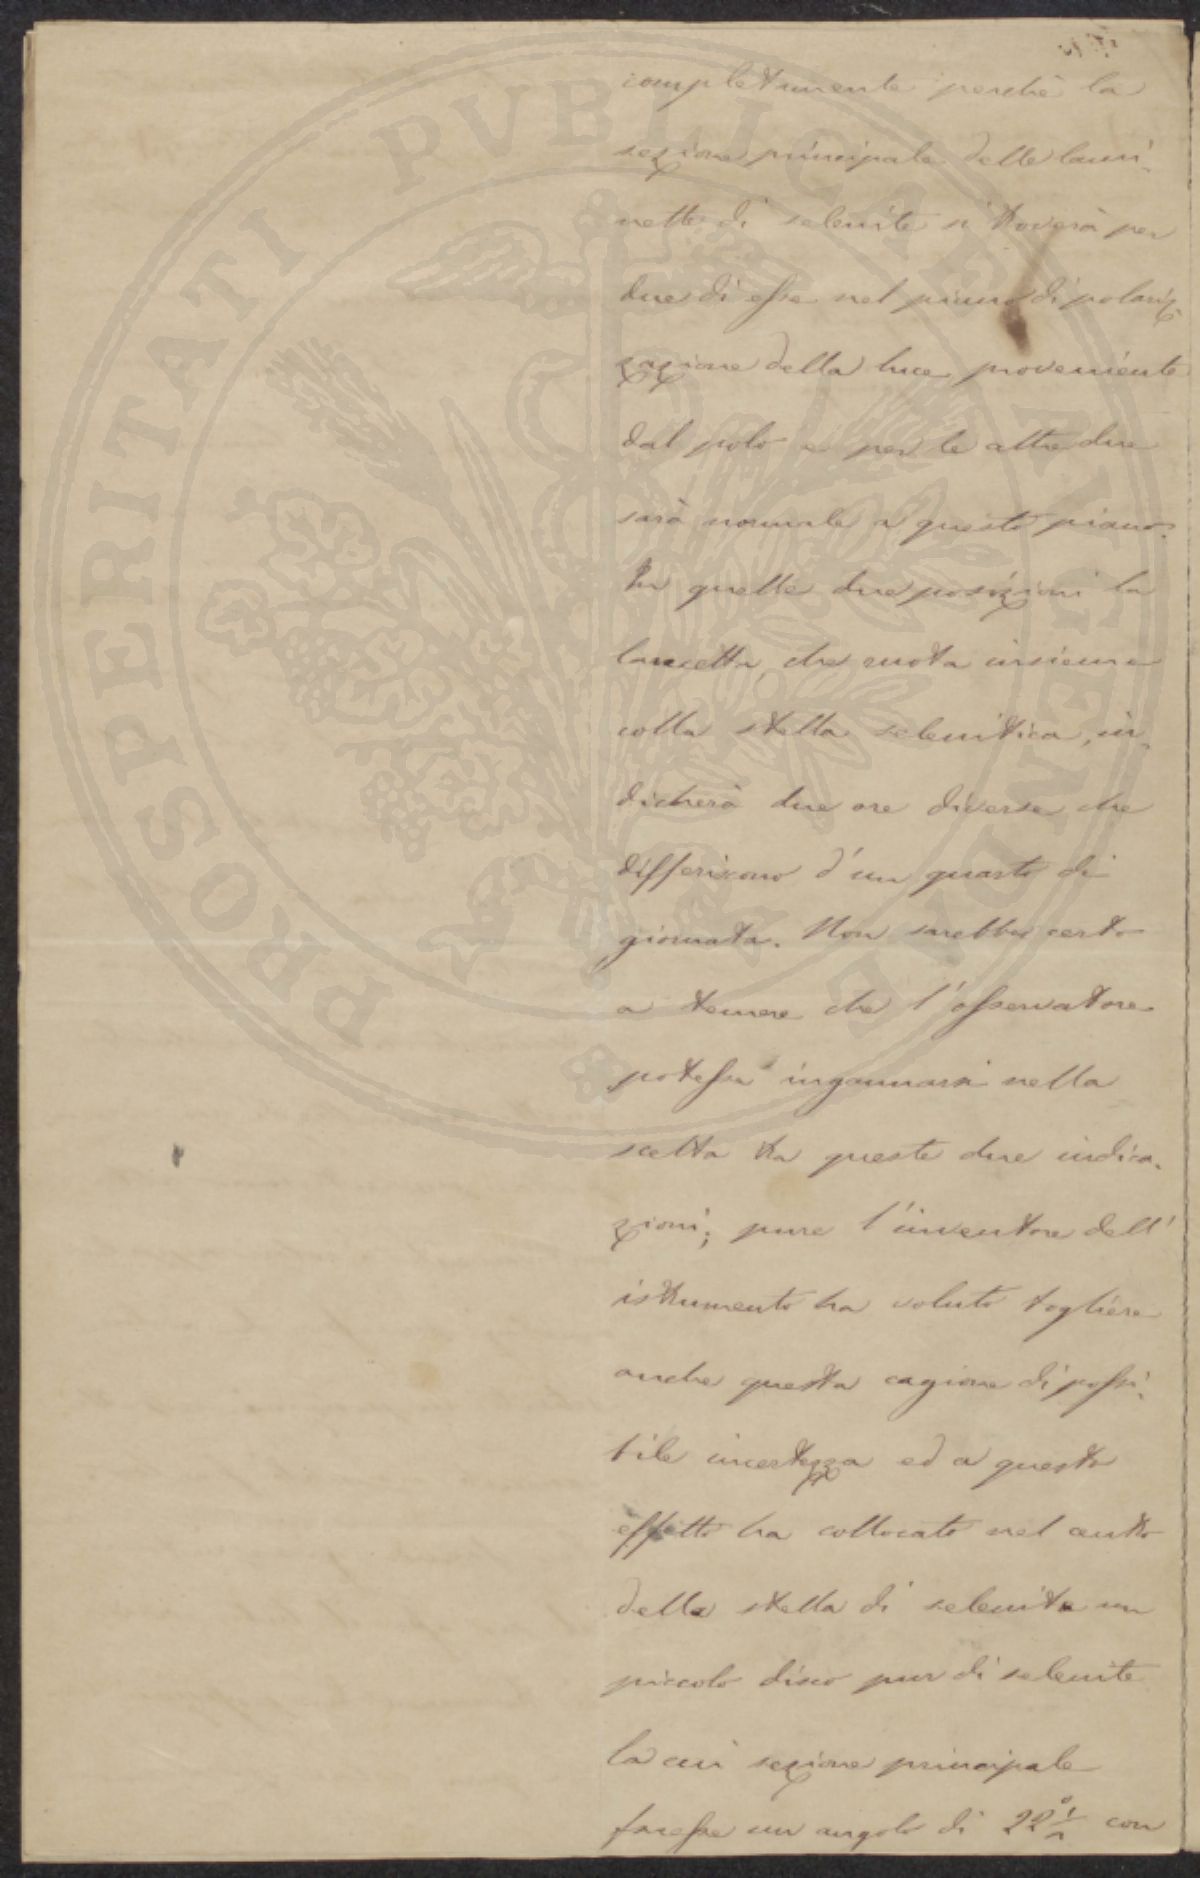 completamente perchè la
sezione principale delle lami-
nette di selenite si troverà per
due di esse nel piano di polariz-
zazione della luce proveniente
dal polo e per le altre due
sarà normale a questo piano.
In quelle due posizioni la
lancetta, che ruota insieme
colla stella selenitica, in-
dicherà due ore diverse che
differiscono d'un quarto di
giornata. Non sarebbe certo
a temere che l'osservatore
potesse ingannarsi nella
scelta tra queste due indica-
zioni; pure l'inventore dell'
istrumento ha voluto togliere
anche questa cagione di possi-
bile incertezza ed a questo
effetto ha collocato nel centro
della stella di selenite un
piccolo disco pur di selenite
la cui sezione principale
facesse un angolo di 22°½ con
PROSPERITATI PVBLICAE AVGENDAE